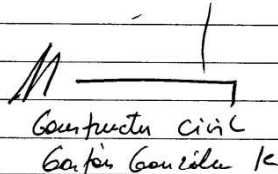 Constructor civil
Gastón González K